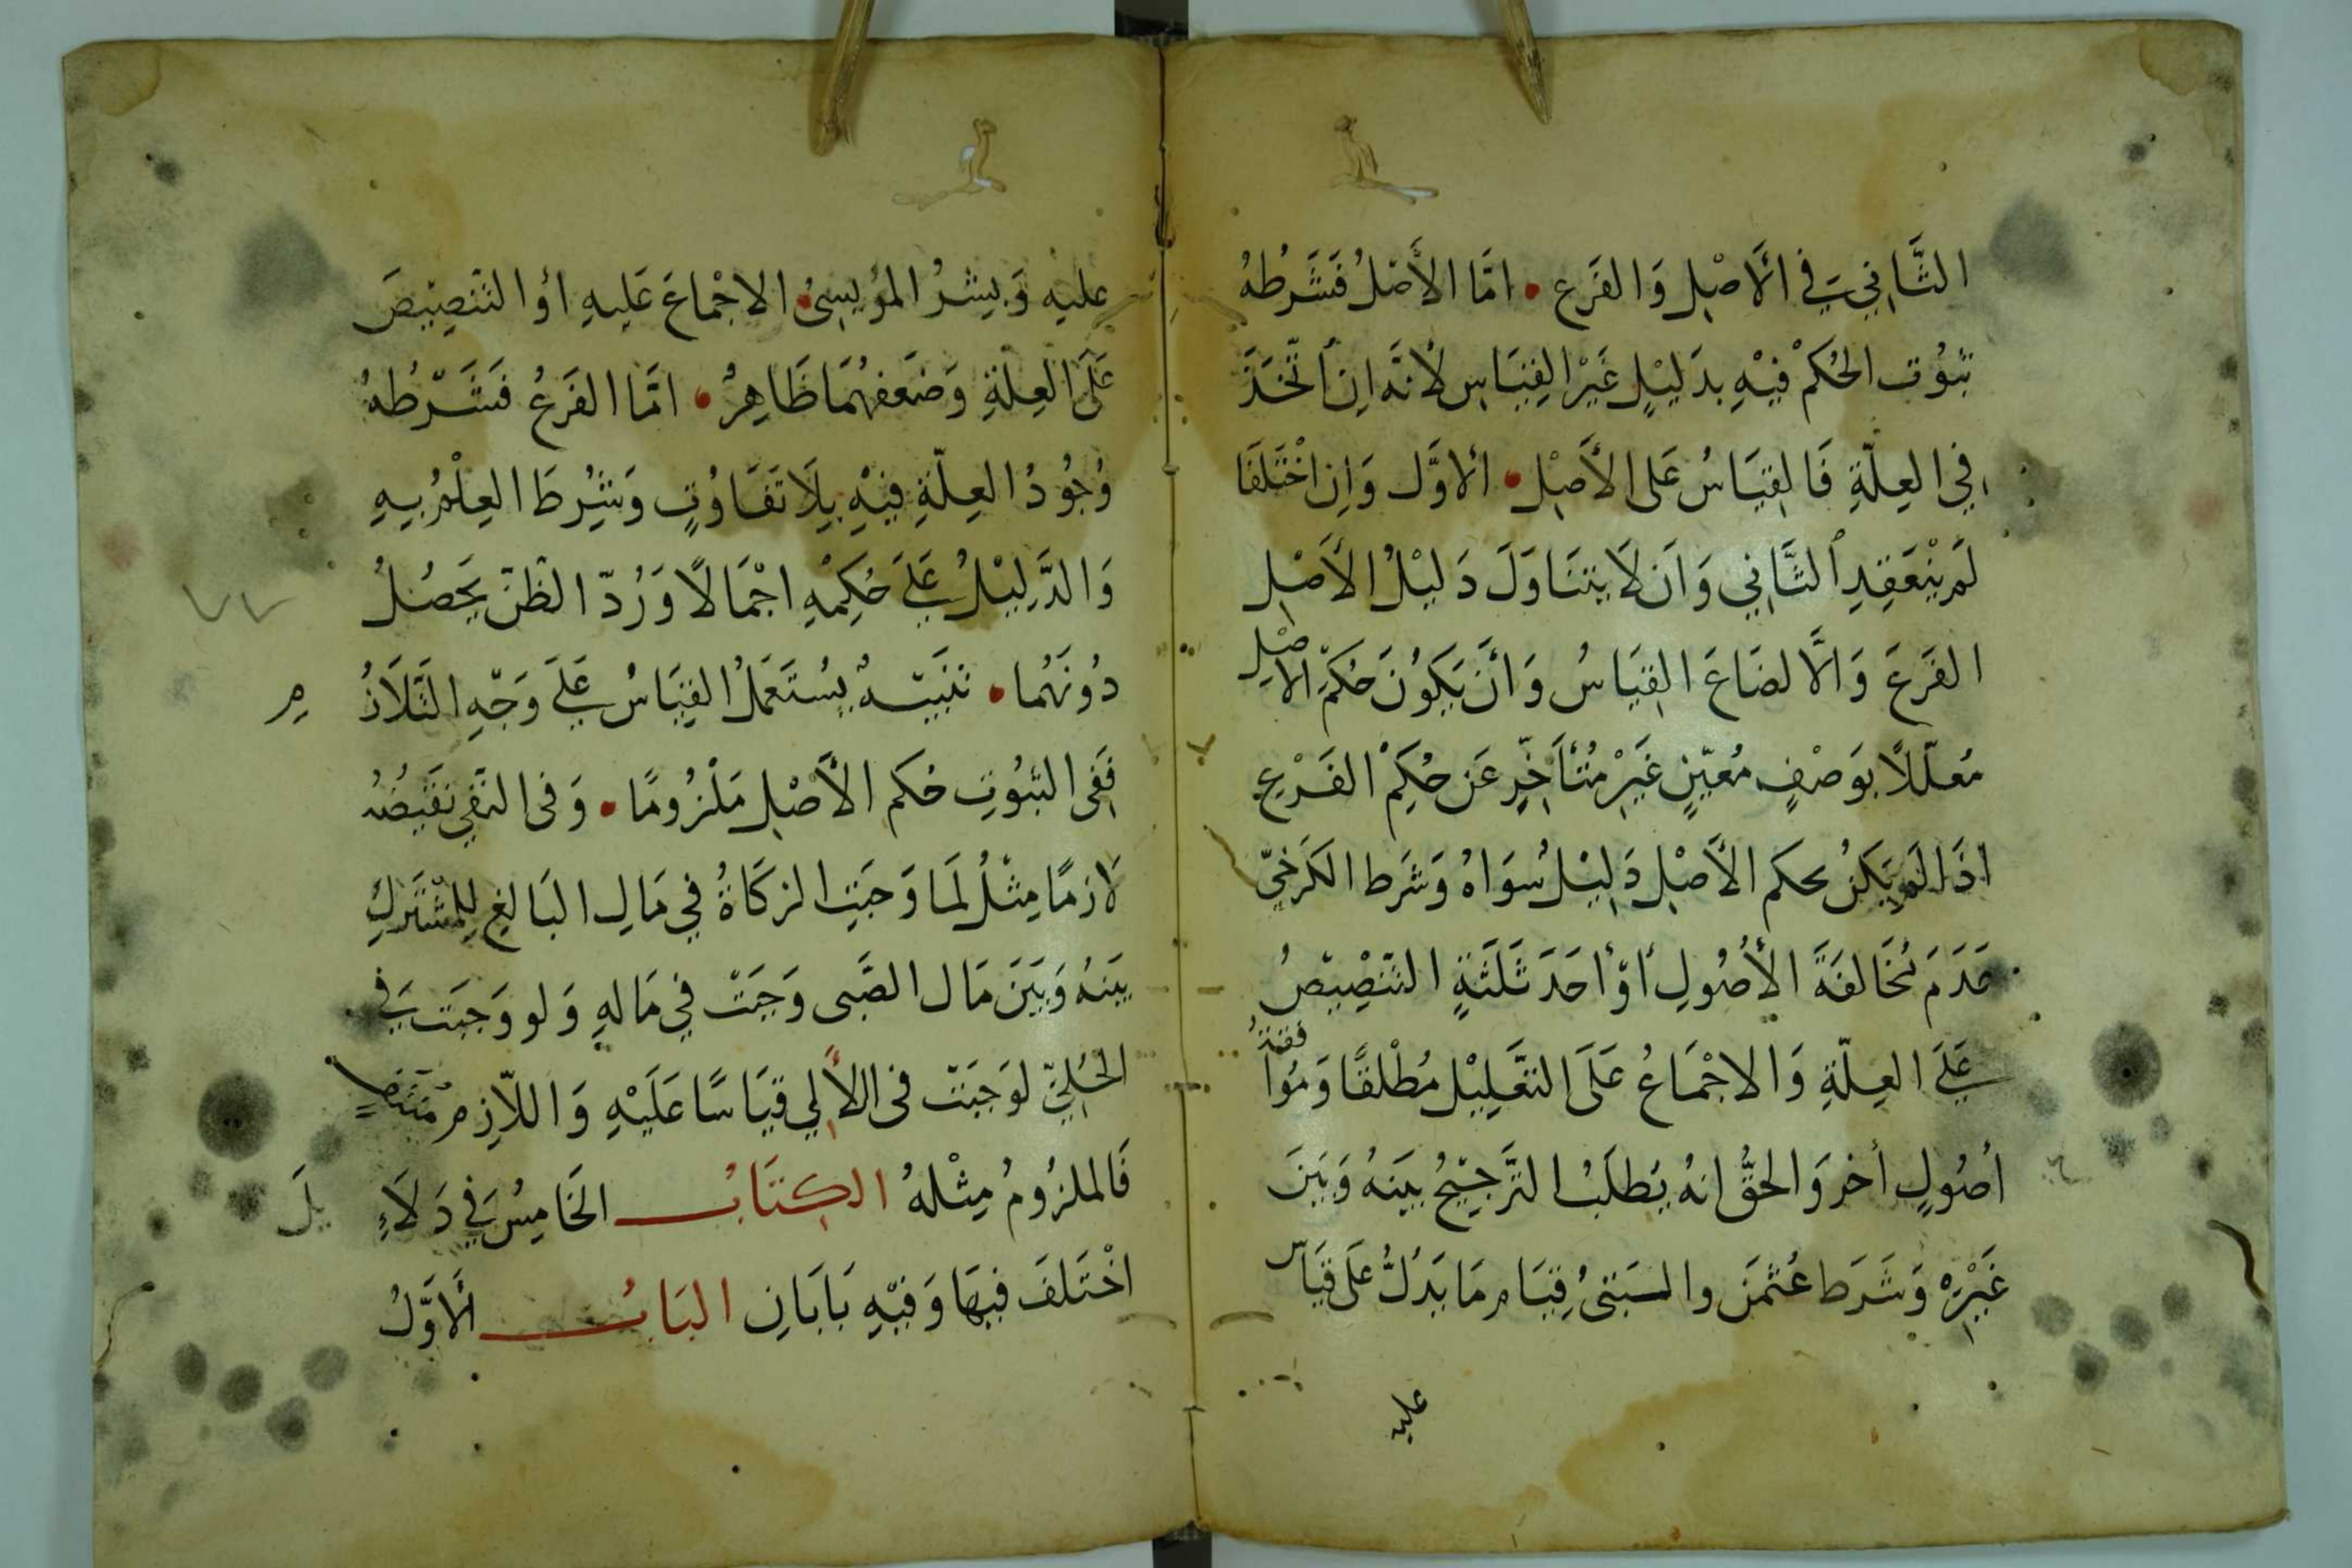 الثَّانِي فِي الأَصْلِ وَالفَرَعِ • امَّا الأَصْلُ فَشَرْطُهُ
ثبُوْت الحُكمْ فيْهِ بدَليْلٍ غَيْرْ القِيَاسِ لأنَّه اِن اتّخَذَ
فِي العِلّةِ فَالقِيَاسُ عَلى الأَصْلِ • الاوَّل وَاِن اخْتَلَفَا
لَم يَنْعَقِدِ الثَّانِي وَاَن لَا يتنَاوَلَ دَليْلُ الأَصْلِ
الفَرَعَ وَالَّا لضَاعَ القِيَاسُ وَأنَّ يَكوُنَ حُكمَِ الاصْلِ
مُعلّلاً بوَصْفٍ مُعيّنٍ غَيَرْ مُتأَخِّرٍ عَن حُكِمْ الفَرْعِ
اذَا لَم يَكنُ لحكم الأَصْلِ دَلِيْلُ سُوَاهُ وَشَرط الكَرخيّ
عَدَمَ مُخَالفَةَ الأُصُولِ أوْ أحَدَ ثَلَثَةٍ التّنْصِيْصُ
عَلَى العِلّةِ وَالاجْمَاعُ عَلَى التعَّلِيْل مُطْلقًا وَمُوافقةُ
أصُولٍ أخر وَالحقُّ انهُ يُطلَبُ الترَّجِيْحُ بيَنهُ وَبَيَن
غَيْرِهْ وَشَرَط عُثمَن والبَتىُ قِيَام مَا يَدَلُّ عَلَى قيَاس
عليه
عليه وَبِشرُ المُرِيْسِىُ الاجْمَاعَ عَلَيهِ أوُ التّنصِيْصَ
عَلَى العِلّةِ وَضَعَفهُمَا ظَاهِرُ • امَّا الفَرَعُ فَشَرْطُهُ
وُجُوُدُ العِلّةِ فيْهِ بِلَا تَفَاوُتٍ وَشُرِطَ العِلْمُ بِهِ
وَالدَّلِيْلُ عَلَى حُكِمْهِ اجْمَالاً وَرُدّ الظّنّ يَحصُلُ
دُونَهُمَا • تنبَيِهُ يسُتَعَمَلُ القِيَاسُ عَلَى وَجّهِ التَّلَازُ م
فَفِى الثبُوُتِ حُكم الأَصْلِ مَلْزُومًا • وَفِى النّفِي نقَيضُهُ
لَازمًا مِثْلُ لَمَا وَجبَتِ الزكَاةُ فِي مَالِ البَالغِ لِلِمُشْتَرَكِ
بيَنهُ وَبَيَنَ مَال الصَّبى وَجَبَتْ فِي مَالهِ وَلو وَجبَت فِي
الحُلِيّ لوَجَبَتْ فى الَّلأَلِي قيَاسًا عَلَيْهِ وَاللَّازِم مُنتفٍ
فَالملزُومُ مِثْلهُ الكِتَابُ الخَامِسُ فِي دَلَاءِ يلَ
اخْتَلَفَ فيهَا وَفيْهِ بَابَانِ البَابُ الأَوَّلُ